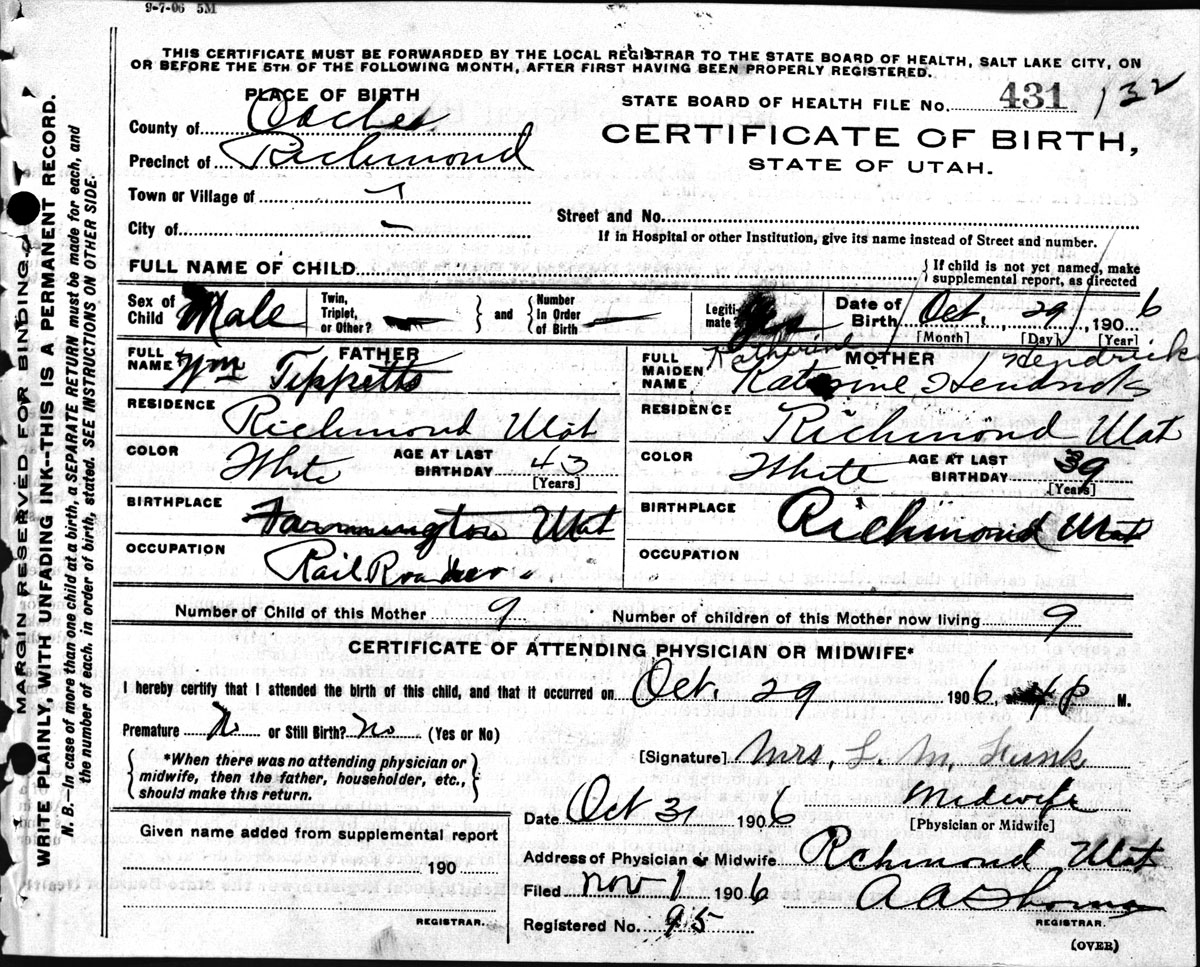 9-7-06 5M
THIS CERTIFICATE MUST BE FORWARDED BY THE LOCAL REGISTRAR TO THE STATE BOARD OF HEALTH, SALT LAKE CITY, ON
OR BEFORE THE 5TH OF THE FOLLOWING MONTH, AFTER FIRST HAVING BEEN PROPERLY REGISTERED.
MARGIN RESERVED FOR BINDING
WRITE PLAINLY, WITH UNFADING INK--THIS IS A PERMANENT RECORD.
N. B.--In case of more than one child at a birth, a SEPARATE RETURN must be made for each, and
the number of each, in order of birth, stated. SEE INSTRUCTIONS ON OTHER SIDE.
PLACE OF BIRTH
County of Cache
Precinct of Richmond
Town or Village of -
City of -
STATE BOARD OF HEALTH FILE No. 431 132
CERTIFICATE OF BIRTH,
STATE OF UTAH.
Street and No.
If in Hospital or other Institution, give its name instead of Street and number.
FULL NAME OF CHILD
{ If child is not yet named, make
supplemental report, as directed
Sex of Child Male
Twin, Triplet, or Other? — } and { Number In Order of Birth —
Legitimate? Yes
Date of Birth Oct, 29, 1906
[Month] [Day] [Year]
FATHER
FULL NAME Wm Tippetts
RESIDENCE Richmond Utat
COLOR White AGE AT LAST BIRTHDAY 43
[Years]
BIRTHPLACE Farmington Utat
OCCUPATION Rail Roader
MOTHER
Katherine Hendrick
FULL MAIDEN NAME Katerine Hendricks
RESIDENCE Richmond Utat
COLOR White AGE AT LAST BIRTHDAY 39
[Years]
BIRTHPLACE Richmond Utat
OCCUPATION
Number of Child of this Mother 9 Number of children of this Mother now living 9
CERTIFICATE OF ATTENDING PHYSICIAN OR MIDWIFE*
I hereby certify that I attended the birth of this child, and that it occurred on Oct. 29 1906, 4 P M.
Premature No or Still Birth? No (Yes or No)
{ *When there was no attending physician or
midwife, then the father, householder, etc.,
should make this return. }
[Signature] Mrs. L. M. Funk
Midwife
[Physician or Midwife]
Date Oct 31 1906
Address of Physician or Midwife Rchmond Utat
Given name added from supplemental report
190
REGISTRAR.
Filed Nov 1 1906 A A Thomas
REGISTRAR.
Registered No. 95
(OVER)